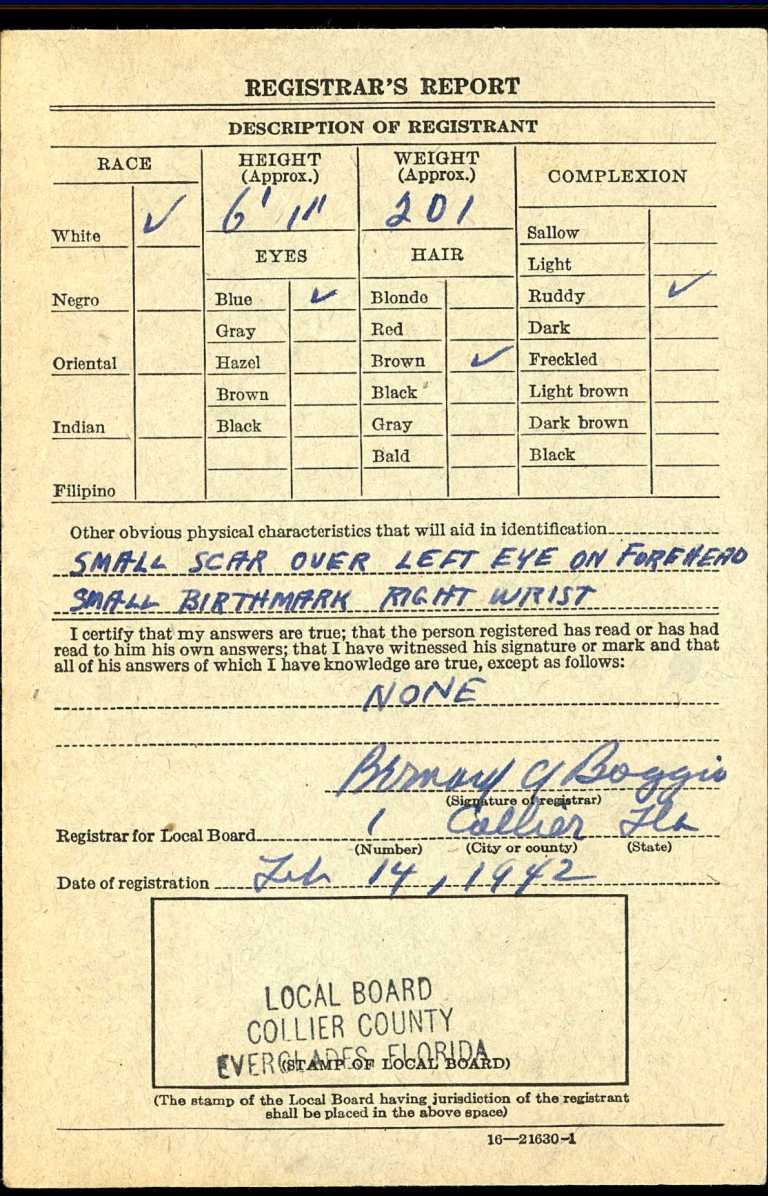 REGISTRAR'S REPORT
DESCRIPTION OF REGISTRANT
RACE HEIGHT (Approx.) WEIGHT (Approx.) COMPLEXION
White ✓ 6' 1" 201 Sallow
EYES HAIR Light
Negro Blue ✓ Blonde Ruddy ✓
Gray Red Dark
Oriental Hazel Brown ✓ Freckled
Brown Black Light brown
Indian Black Gray Dark brown
Bald Black
Filipino
Other obvious physical characteristics that will aid in identification
SMALL SCAR OVER LEFT EYE ON FOREHEAD
SMALL BIRTHMARK RIGHT WRIST
I certify that my answers are true; that the person registered has read or has had
read to him his own answers; that I have witnessed his signature or mark and that
all of his answers of which I have knowledge are true, except as follows:
NONE
Bernard G Boggio
(Signature of registrar)
Registrar for Local Board 1 Collier Fla
(Number) (City or county) (State)
Date of registration Feb 14, 1942
LOCAL BOARD
COLLIER COUNTY
EVERGLADES, FLORIDA
(STAMP OF LOCAL BOARD)
(The stamp of the Local Board having jurisdiction of the registrant
shall be placed in the above space)
16—21630-1